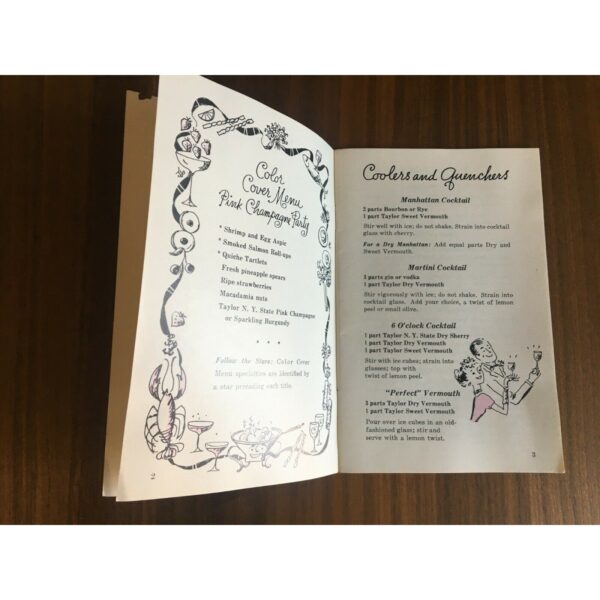 Color
Cover Menu
Pink Champagne Party
* Shrimp and Egg Aspic
* Smoked Salmon Roll-ups
* Quiche Tartlets
Fresh pineapple spears
Ripe strawberries
Macadamia nuts
Taylor N. Y. State Pink Champagne
or Sparkling Burgundy
* * *
Follow the Stars: Color Cover
Menu specialties are identified by
a star preceding each title.
2
Coolers and Quenchers
Manhattan Cocktail
2 parts Bourbon or Rye
1 part Taylor Sweet Vermouth
Stir well with ice; do not shake. Strain into cocktail
glass with cherry.
For a Dry Manhattan: Add equal parts Dry and
Sweet Vermouth.
Martini Cocktail
3 parts gin or vodka
1 part Taylor Dry Vermouth
Stir vigorously with ice; do not shake. Strain into
cocktail glass. Add your choice, a twist of lemon
peel or small olive.
6 O'clock Cocktail
1 part Taylor N. Y. State Dry Sherry
1 part Taylor Dry Vermouth
1 part Taylor Sweet Vermouth
Stir with ice cubes; strain into
glasses; top with
twist of lemon peel.
"Perfect" Vermouth
3 parts Taylor Dry Vermouth
1 part Taylor Sweet Vermouth
Pour over ice cubes in an old-
fashioned glass; stir and
serve with a lemon twist.
3